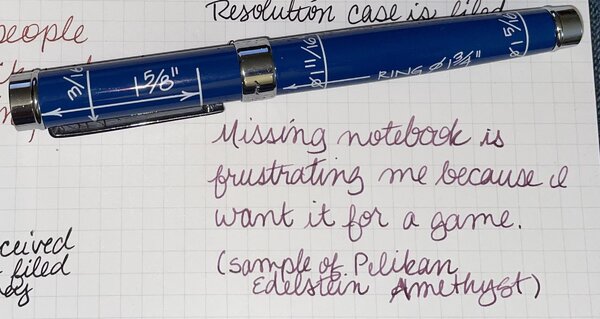 Resolution case is filed
people
3/16
1 5/8"
RING Ø 1 3/4"
Missing notebook is
frustrating me because I
want it for a game.
(sample of Pelikan
Edelstein Amethyst)
ceived
filed